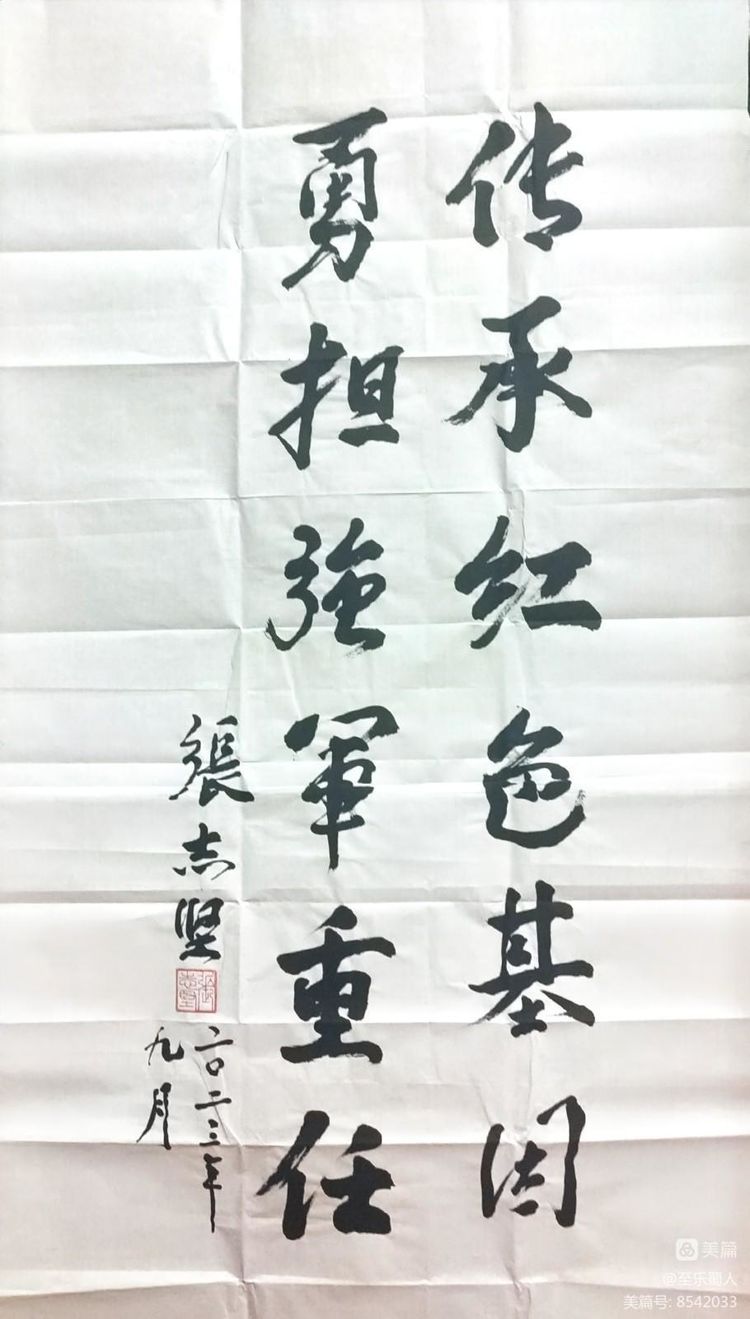 传承红色基因
勇担強军重任
張志坚
二〇二三年
九月
美篇
美篇号: 8542033